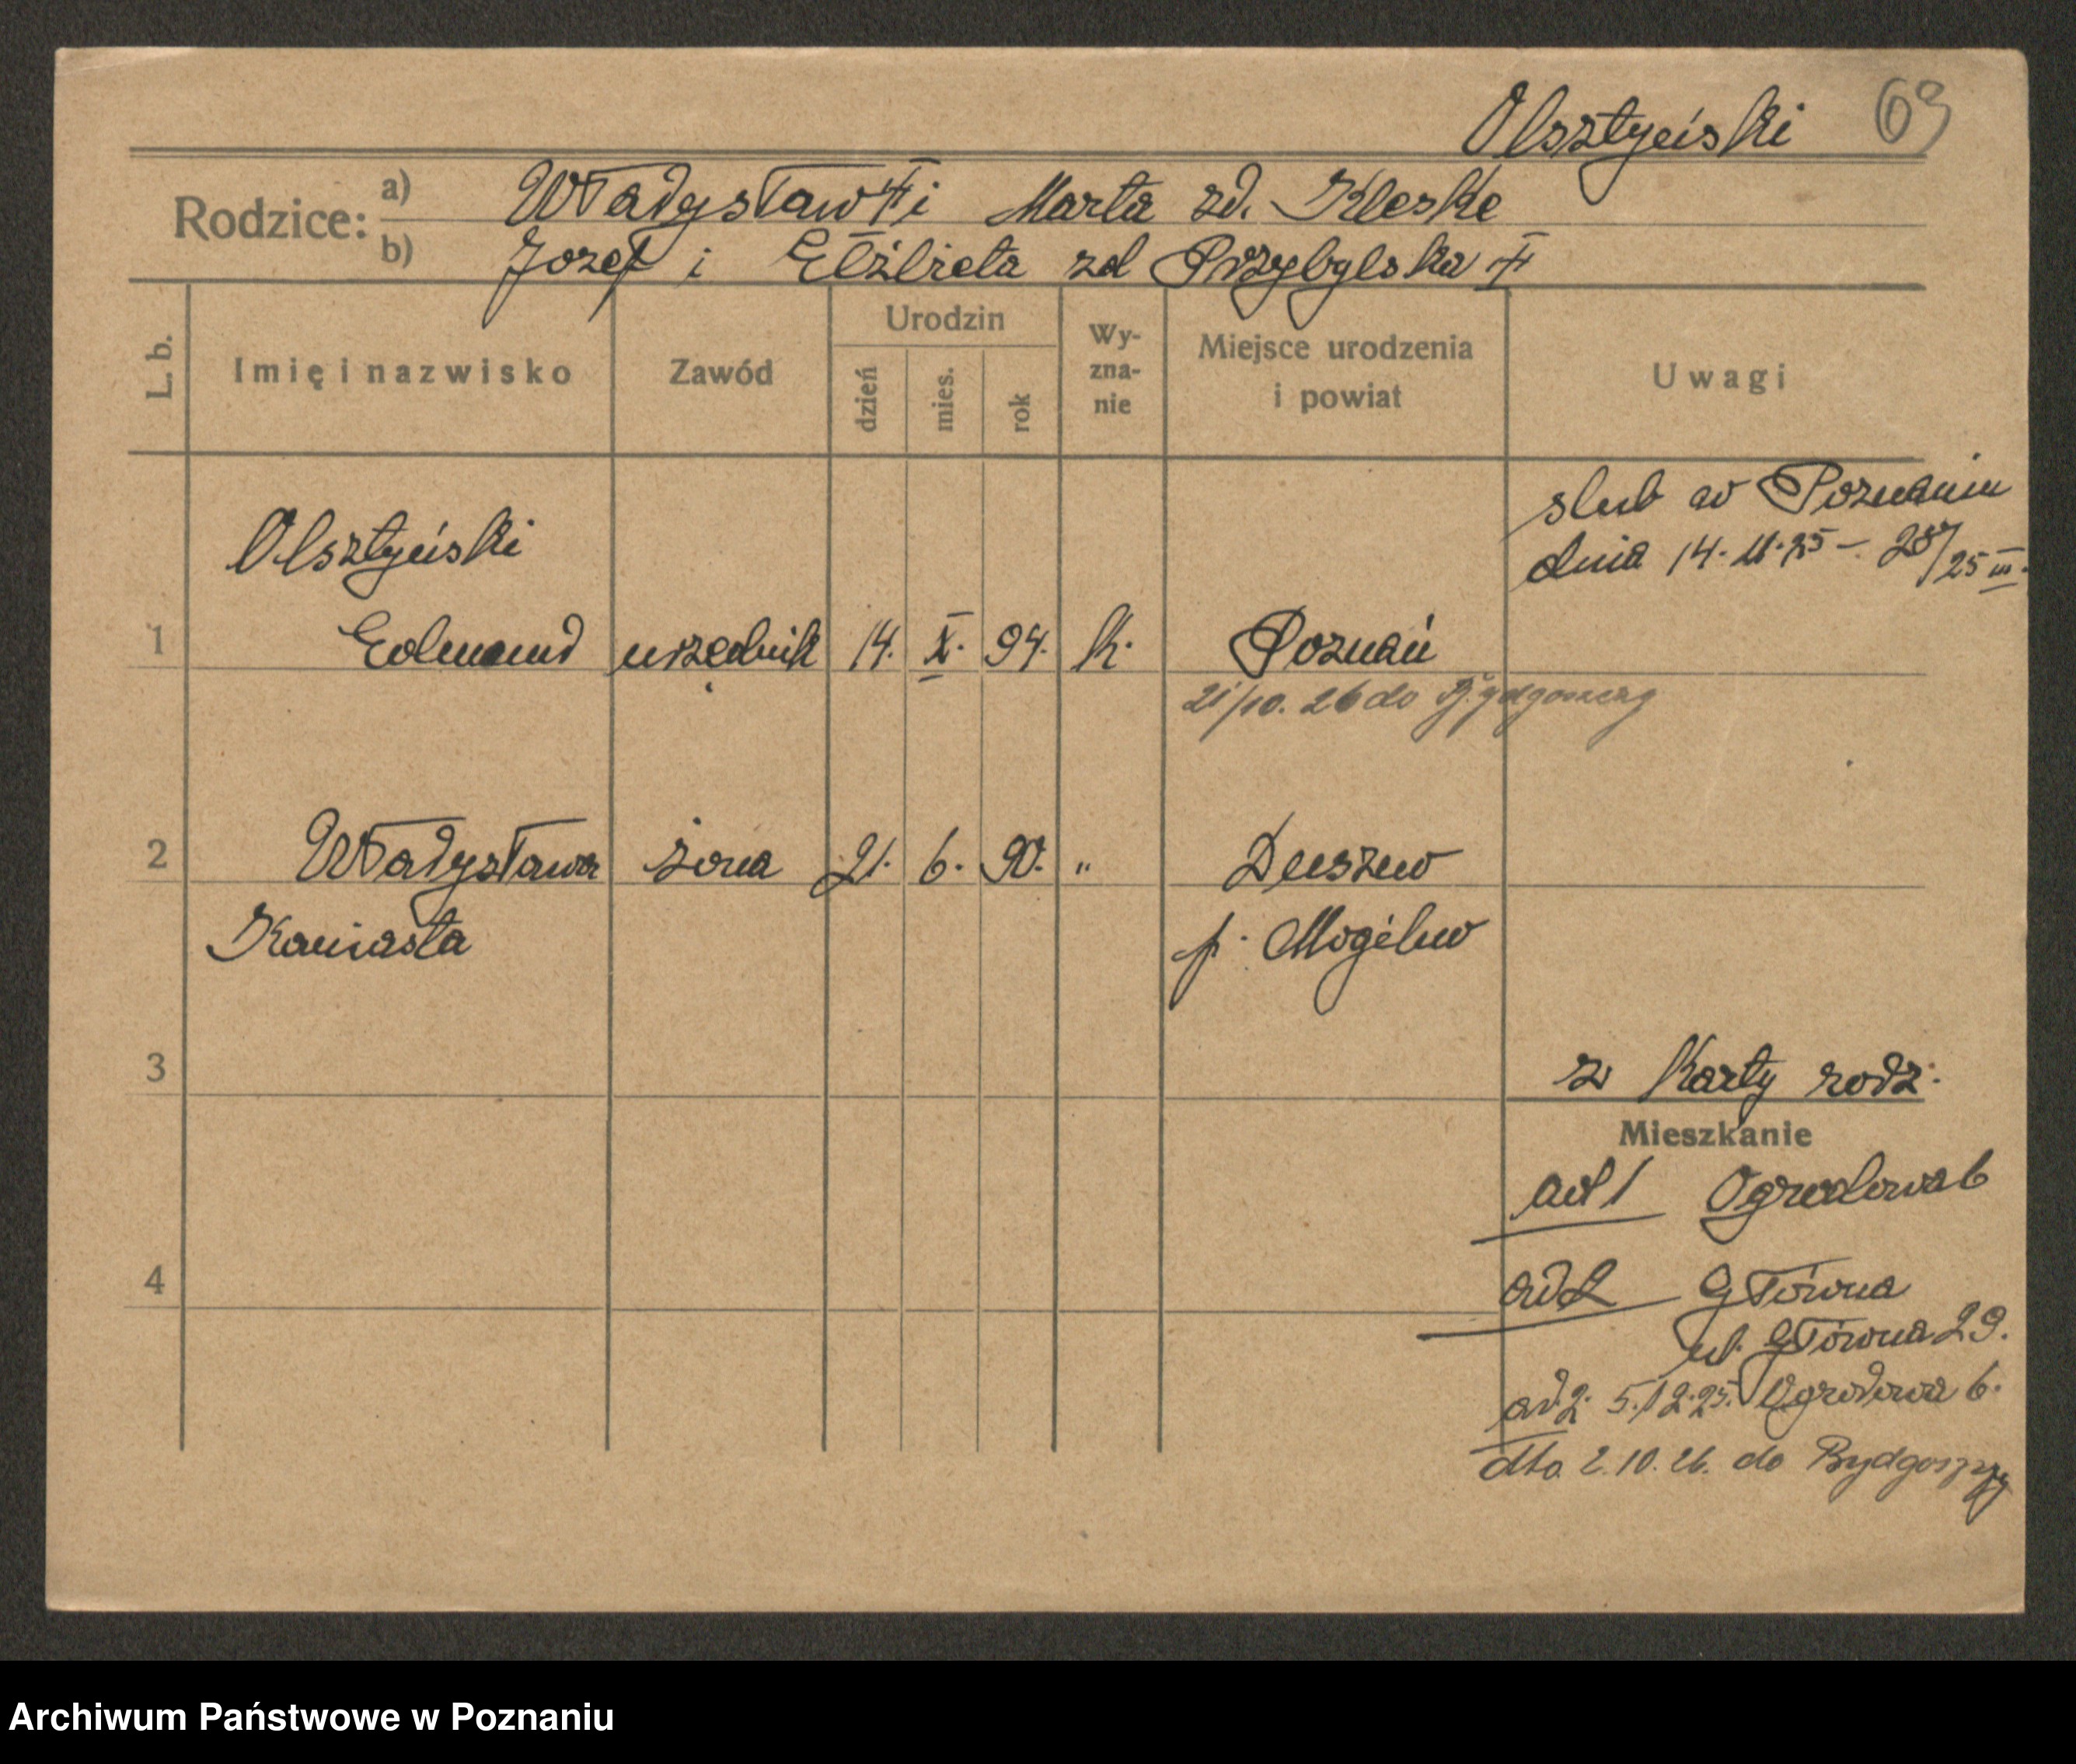 Olsztyński 69
Rodzice: a) Władysław ‡ i Marta zd. Kleske
b) Jozef i Elżbieta zd Przybylska ‡
L. b.
Imię i nazwisko
Zawód
Urodzin
dzień
mies.
rok
Wy-
zna-
nie
Miejsce urodzenia
i powiat
Uwagi
slub w Poznaniu
dnia 14. 11. 25 –
/25 III.
Olsztyński
1 Edmund urzędnik 14. X. 94. k. Poznań
21/10. 26 do Bydgoszczy
2 Władysława żona 21. 6. 90. „ Duszno
Kaniasta p. Mogilno
3 z Karty rodz.
Mieszkanie
ad 1 Ogrodowa 6
4
ad 2 Główna
ul. Główna 29.
ad. 2. 5.12.25. Ogrodowa 6.
dto. 2.10.26. do Bydgoszczy
Archiwum Państwowe w Poznaniu